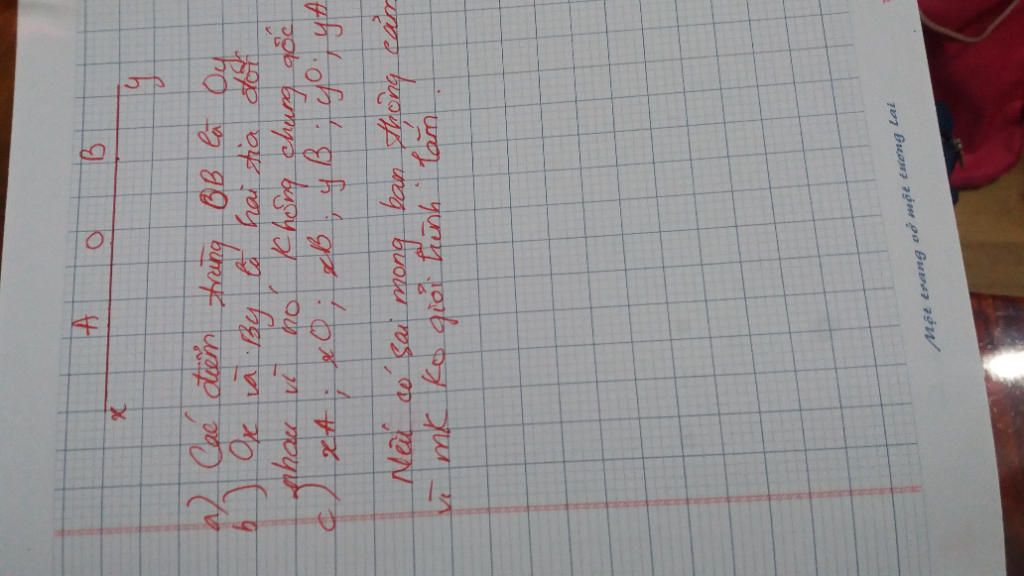 x A O B y
a) Các điểm trùng BB là Oy
b) Ox và By là hai tia đối
nhau vì nó không chung gốc
c) xA; xO; xB; yB; yO; yA
Nếu có sai mong bạn thông cảm
vì mk ko giỏi hình lắm.
Một trang vở một tương lai